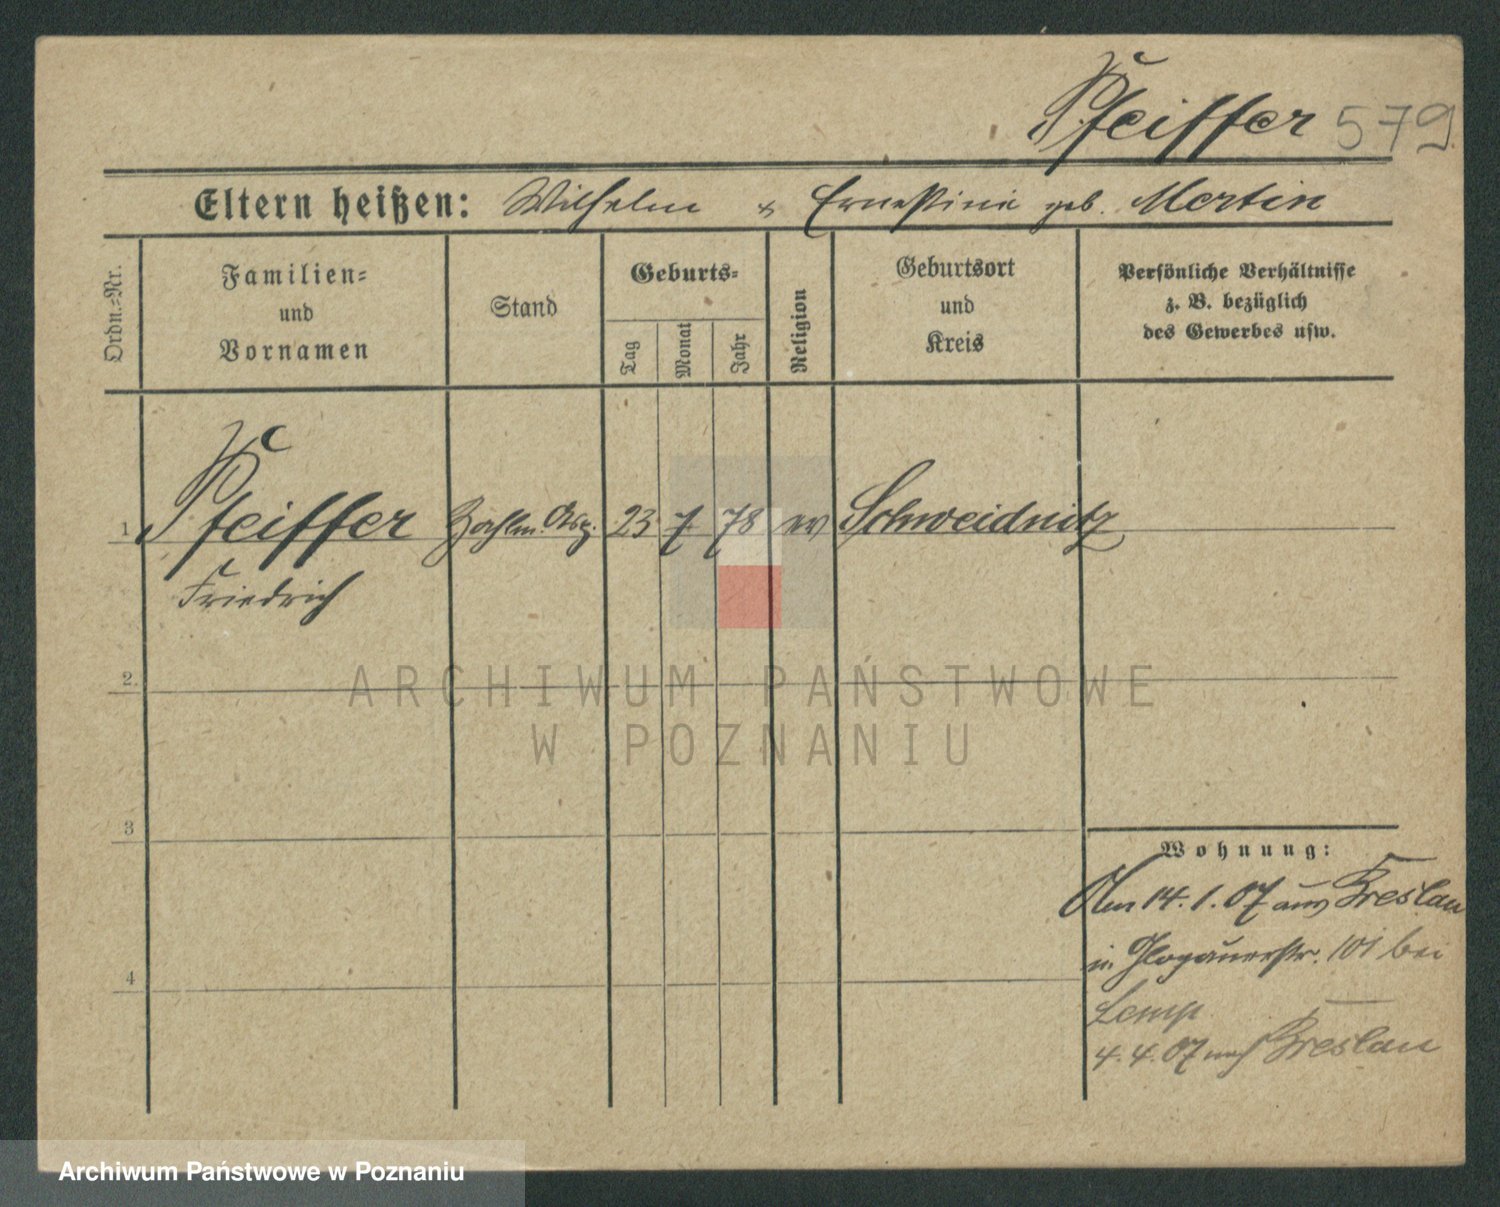 Pfeiffer 579.
Eltern heißen: Wilhelm & Ernestine geb. Mertin
Ordn.=Nr.
Familien=
und
Vornamen
Stand
Geburts=
Tag
Monat
Jahr
Religion
Geburtsort
und
Kreis
Persönliche Verhältnisse
z. B. bezüglich
des Gewerbes usw.
1 Pfeiffer Zahlm. Asp. 23 7 78 ev Schweidnitz
Friedrich
2.
3
4
Wohnung:
Am 14.1.07 aus Breslau
in Glogauerstr. 101 bei
4.4.07 nach Breslau
ARCHIWUM PAŃSTWOWE
W POZNANIU
Archiwum Państwowe w Poznaniu